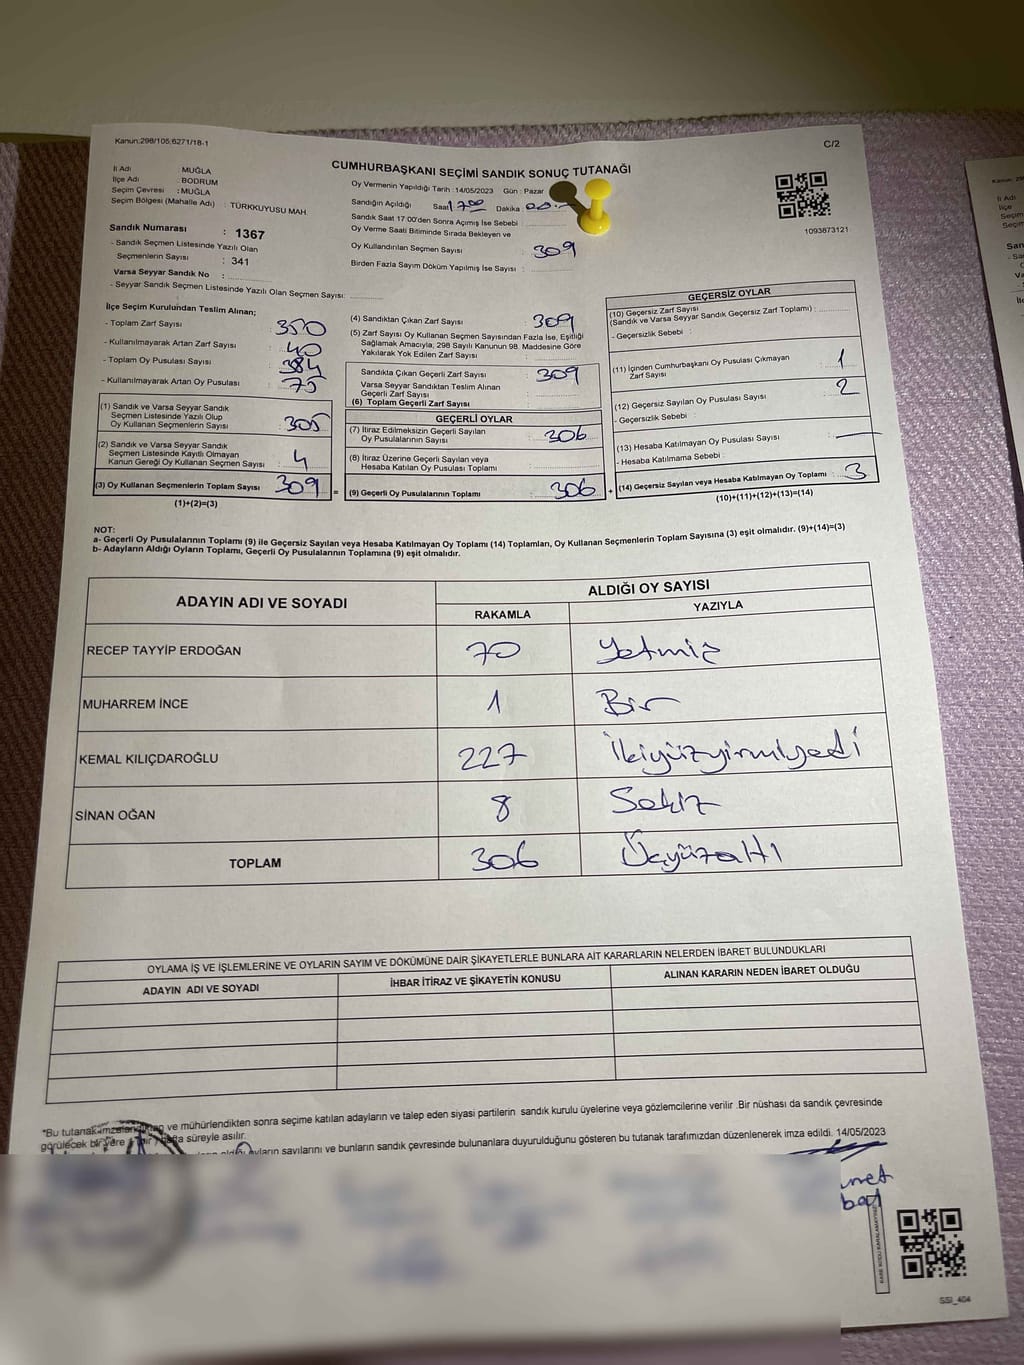 Kanun:298/105;6271/18-1
C/2
CUMHURBAŞKANI SEÇİMİ SANDIK SONUÇ TUTANAĞI
İl Adı : MUĞLA
İlçe Adı : BODRUM
Seçim Çevresi : MUĞLA
Seçim Bölgesi (Mahalle Adı) : TÜRKKUYUSU MAH.
Sandık Numarası : 1367
- Sandık Seçmen Listesinde Yazılı Olan
Seçmenlerin Sayısı : 341
Varsa Seyyar Sandık No :
- Seyyar Sandık Seçmen Listesinde Yazılı Olan Seçmen Sayısı:
Oy Vermenin Yapıldığı Tarih : 14/05/2023 Gün : Pazar
Sandığın Açıldığı Saat 17:00 Dakika 00
Sandık Saat 17:00'den Sonra Açımış İse Sebebi :
Oy Verme Saati Bitiminde Sırada Bekleyen ve
Oy Kullandırılan Seçmen Sayısı : 309
Birden Fazla Sayım Döküm Yapılmış İse Sayısı :
1093873121
İlçe Seçim Kurulundan Teslim Alınan;
- Toplam Zarf Sayısı : 350
- Kullanılmayarak Artan Zarf Sayısı : 40
- Toplam Oy Pusulası Sayısı : 384
- Kullanılmayarak Artan Oy Pusulası : 75
(1) Sandık ve Varsa Seyyar Sandık
Seçmen Listesinde Yazılı Olup
Oy Kullanan Seçmenlerin Sayısı : 305
(2) Sandık ve Varsa Seyyar Sandık
Seçmen Listesinde Kayıtlı Olmayan
Kanun Gereği Oy Kullanan Seçmen Sayısı : 4
(3) Oy Kullanan Seçmenlerin Toplam Sayısı : 309
(1)+(2)=(3)
(4) Sandıktan Çıkan Zarf Sayısı : 309
(5) Zarf Sayısı Oy Kullanan Seçmen Sayısından Fazla İse, Eşitliği
Sağlamak Amacıyla; 298 Sayılı Kanunun 98. Maddesine Göre
Yakılarak Yok Edilen Zarf Sayısı :
Sandıkla Çıkan Geçerli Zarf Sayısı : 309
Varsa Seyyar Sandıktan Teslim Alınan
Geçerli Zarf Sayısı :
(6) Toplam Geçerli Zarf Sayısı :
GEÇERLİ OYLAR
(7) İtiraz Edilmeksizin Geçerli Sayılan
Oy Pusulalarının Sayısı : 306
(8) İtiraz Üzerine Geçerli Sayılan veya
Hesaba Katılan Oy Pusulası Toplamı :
= (9) Geçerli Oy Pusulalarının Toplamı : 306
GEÇERSİZ OYLAR
(10) Geçersiz Zarf Sayısı
(Sandık ve Varsa Seyyar Sandık Geçersiz Zarf Toplamı) :
- Geçersizlik Sebebi :
(11) İçinden Cumhurbaşkanı Oy Pusulası Çıkmayan
Zarf Sayısı : 1
(12) Geçersiz Sayılan Oy Pusulası Sayısı : 2
- Geçersizlik Sebebi :
(13) Hesaba Katılmayan Oy Pusulası Sayısı : —
- Hesaba Katılmama Sebebi :
+ (14) Geçersiz Sayılan veya Hesaba Katılmayan Oy Toplamı : 3
(10)+(11)+(12)+(13)=(14)
NOT:
a- Geçerli Oy Pusulalarının Toplamı (9) ile Geçersiz Sayılan veya Hesaba Katılmayan Oy Toplamı (14) Toplamları, Oy Kullanan Seçmenlerin Toplam Sayısına (3) eşit olmalıdır. (9)+(14)=(3)
b- Adayların Aldığı Oyların Toplamı, Geçerli Oy Pusulalarının Toplamına (9) eşit olmalıdır.
ADAYIN ADI VE SOYADI
ALDIĞI OY SAYISI
RAKAMLA YAZIYLA
RECEP TAYYİP ERDOĞAN 70 Yetmiş
MUHARREM İNCE 1 Bir
KEMAL KILIÇDAROĞLU 227 İkiyüzyirmiyedi
SİNAN OĞAN 8 Sekiz
TOPLAM 306 Üçyüzaltı
OYLAMA İŞ VE İŞLEMLERİNE VE OYLARIN SAYIM VE DÖKÜMÜNE DAİR ŞİKAYETLERLE BUNLARA AİT KARARLARIN NELERDEN İBARET BULUNDUKLARI
ADAYIN ADI VE SOYADI İHBAR İTİRAZ VE ŞİKAYETİN KONUSU ALINAN KARARIN NEDEN İBARET OLDUĞU
*Bu tutanak ve mühürlendikten sonra seçime katılan adayların ve talep eden siyasi partilerin sandık kurulu üyelerine veya gözlemcilerine verilir .Bir nüshası da sandık çevresinde
görülecek bir yere hafta süreyle asılır.
oyların sayılarını ve bunların sandık çevresinde bulunanlara duyurulduğunu gösteren bu tutanak tarafımızdan düzenlenerek imza edildi. 14/05/2023
KARE KODU KARALAMAYINIZ
SSI_404